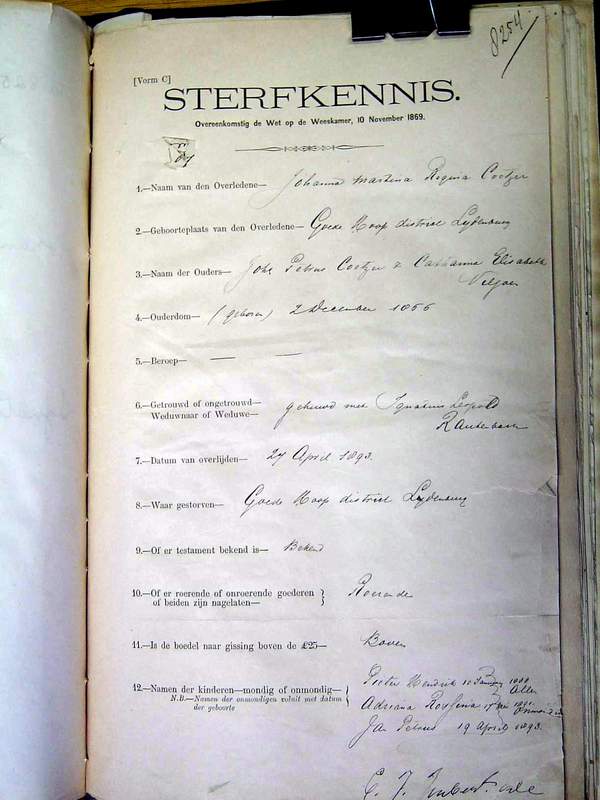 8254
[Vorm C]
STERFKENNIS.
Overeenkomstig de Wet op de Weeskamer, 10 November 1869.
1.—Naam van den Overledene— Johanna Martina Regina Coetzer
2.—Geboorteplaats van den Overledene— Goede Hoop district Lydenburg
3.—Naam der Ouders— Johs Petrus Coetzer & Catharina Elisabeth
Viljoen
4.—Ouderdom— (geboren) 2 December 1866
5.—Beroep— — —
6.—Getrouwd of ongetrouwd—
Weduwnaar of Weduwe— gehuwd met Ignatius Leopold
Rautenbach
7.—Datum van overlijden— 27 April 1893.
8.—Waar gestorven— Goede Hoop district Lydenburg
9.—Of er testament bekend is— Bekend
10.—Of er roerende of onroerende goederen
of beiden zijn nagelaten— Roerende
11.—Is de boedel naar gissing boven de £25— Boven
12.—Namen der kinderen—mondig of onmondig— Pieter Hendrik 10
N.B.—Namen der onmondigen voluit met datum
der geboorte
Allen
Adriana
Jan Petrus 19 April 1893.